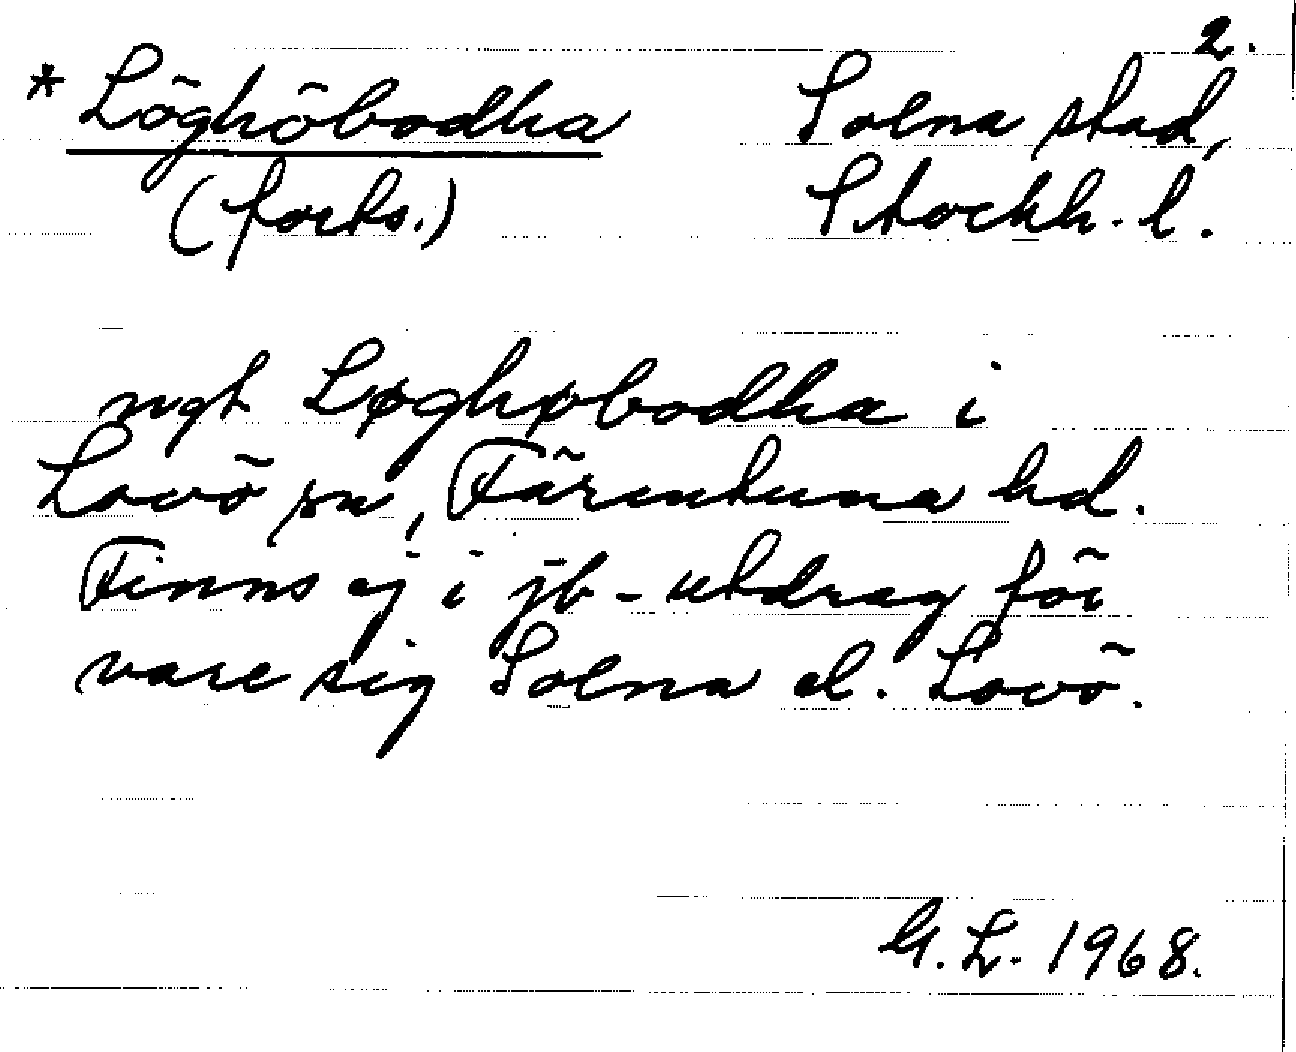 2.
* Löghöbodha Solna stad,
(forts.) Stockh. l.
ngt Løghøbodha i
Lovö sn, Färentuna hd.
Finns ej i jb-utdrag för
vare sig Solna el. Lovö.
G. L. 1968.